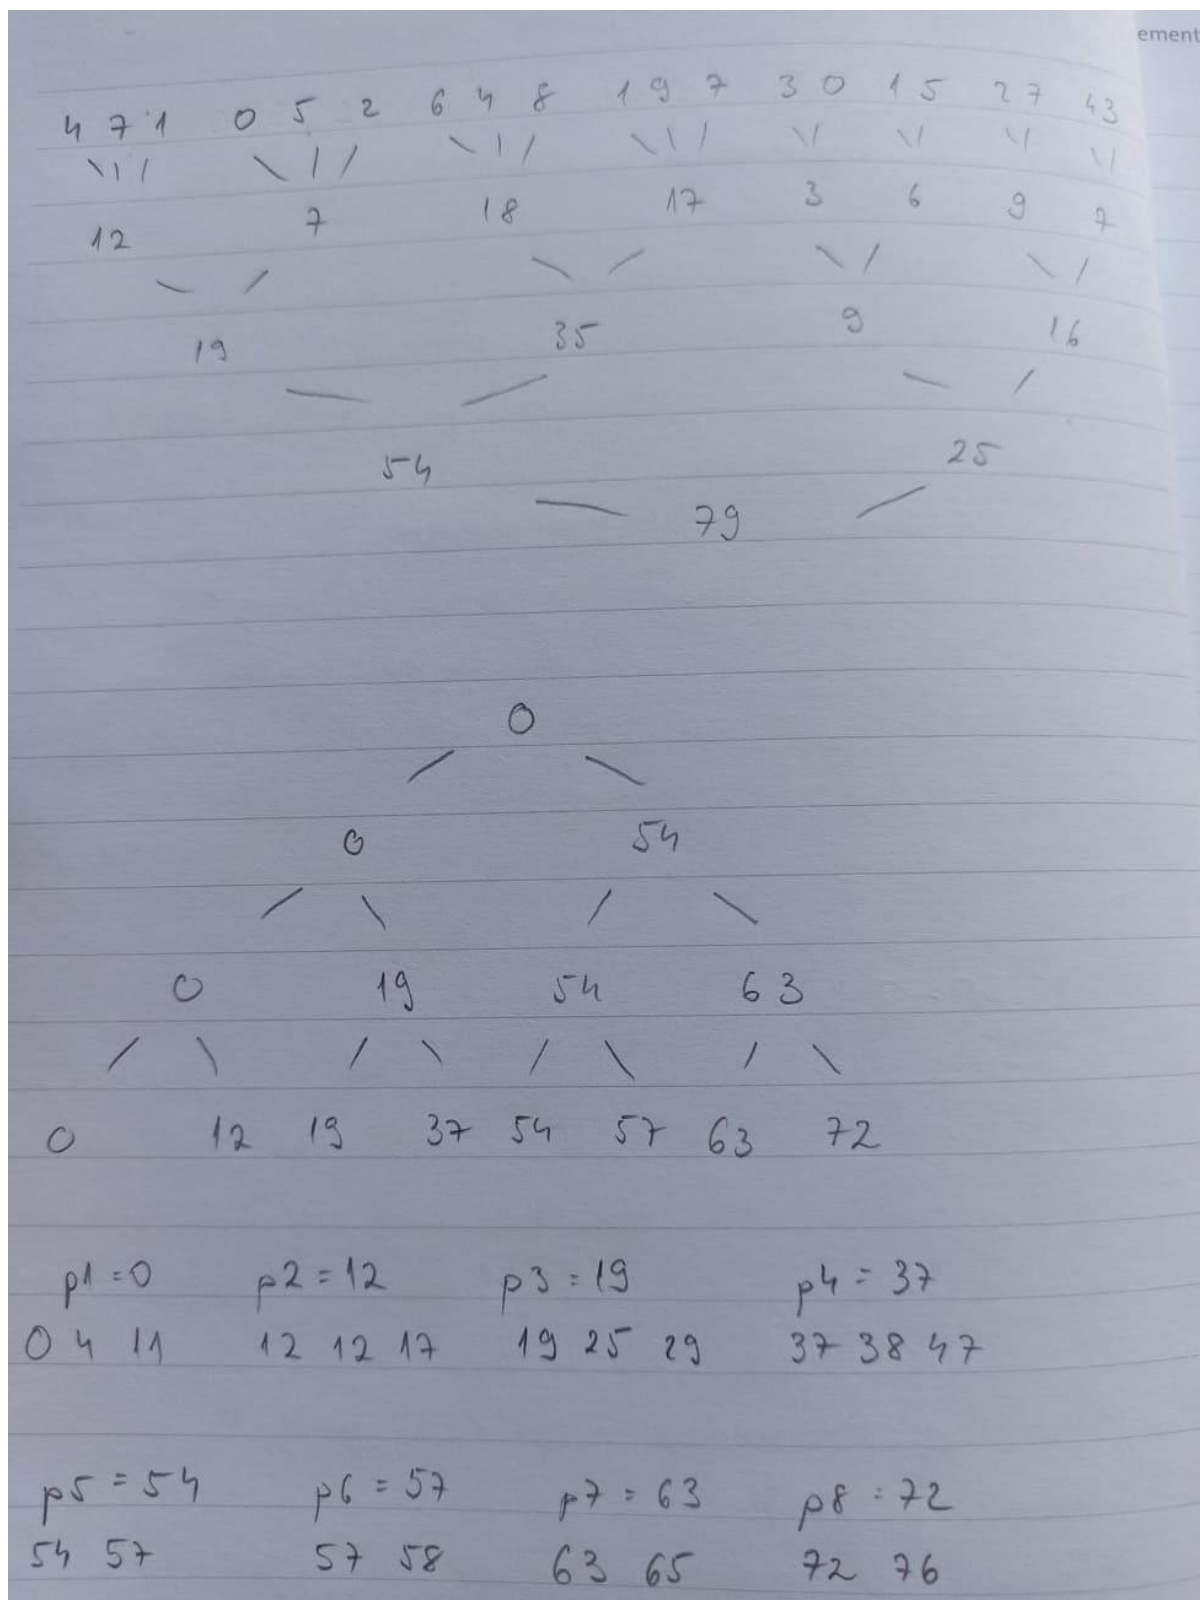 ement
4 7 1 0 5 2 6 4 8 1 9 7 3 0 1 5 2 7 4 3
12 7 18 17 3 6 9 7
19 35 9 16
54 25
79
0
0 54
0 19 54 63
0 12 19 37 54 57 63 72
p1 = 0 p2 = 12 p3 = 19 p4 = 37
0 4 11 12 12 17 19 25 29 37 38 47
p5 = 54 p6 = 57 p7 = 63 p8 = 72
54 57 57 58 63 65 72 76